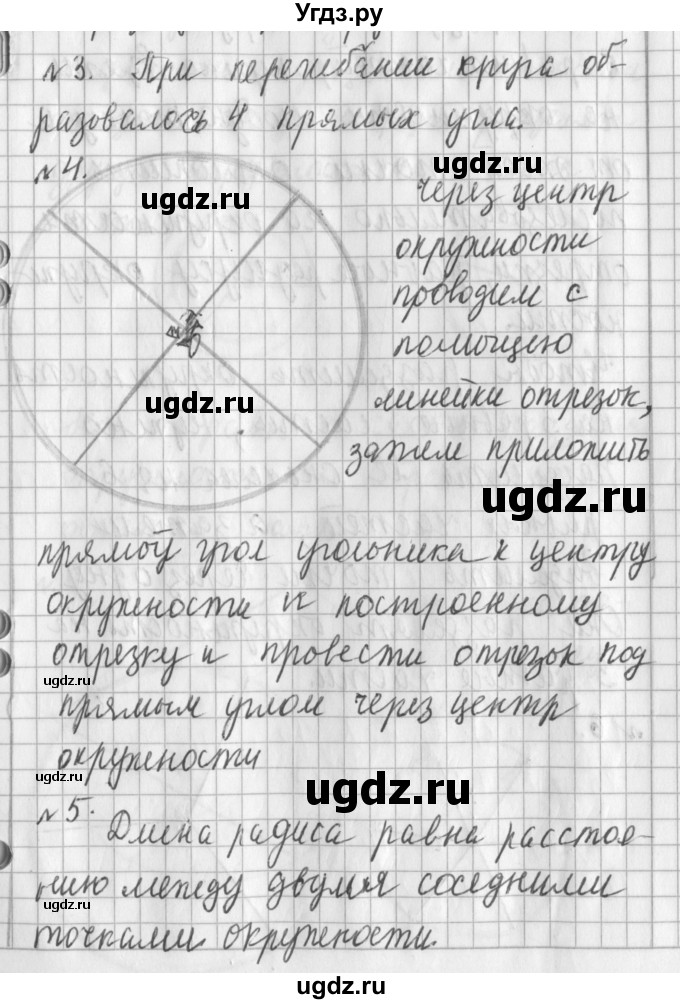 Угдз.ру
№3. При перегибании круга об-
разовалось 4 прямых угла.
№4.
ugdz.ru
ugdz.ru
через центр
окружности
проводим с
помощью
ugdz.ru
линейки отрезок,
затем приложить
ugdz.ru
прямой угол угольника к центру
окружности и к построенному
отрезку и провести отрезок под
ugdz.ru
прямым углом через центр
окружности
ugdz.ru
ugdz.ru
№5.
Длина радиса равна расстоя-
нию между двумя соседними
ugdz.ru
точками окружности.
ugdz.ru